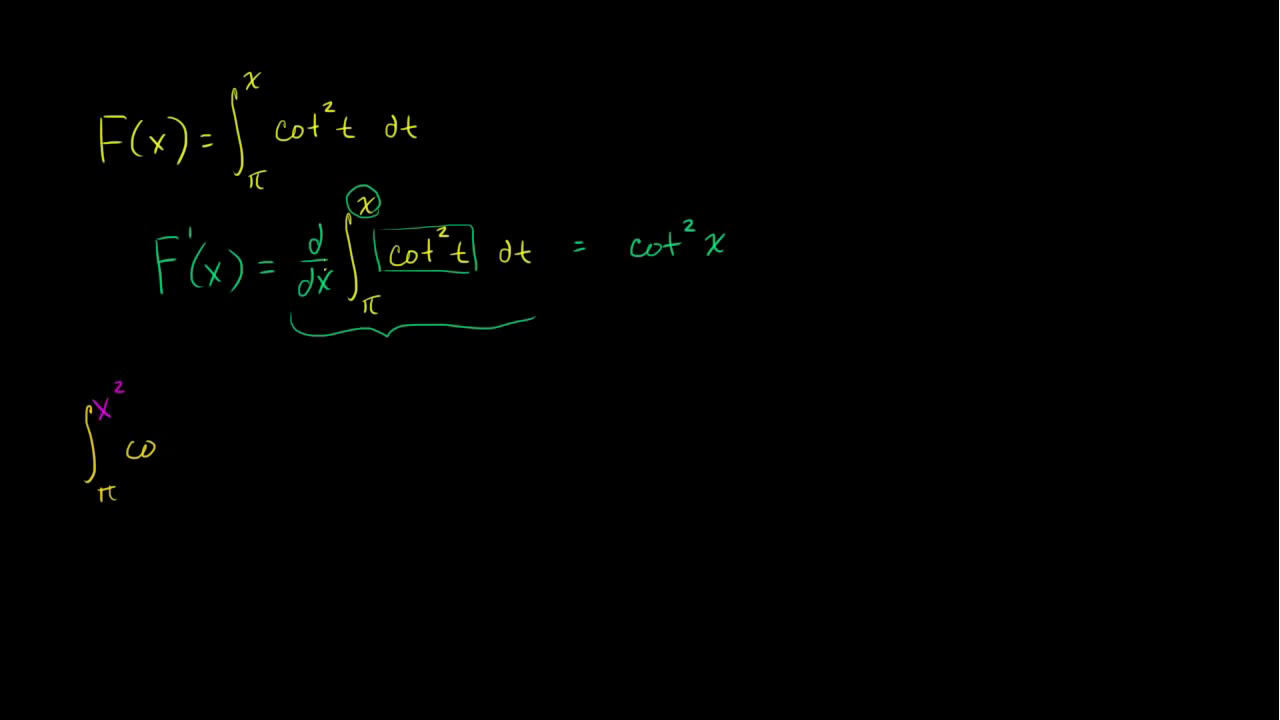 F(x) = ∫_π^x cot² t dt
F'(x) = d/dx ∫_π^x cot² t dt = cot² x
∫_π^{x²} co